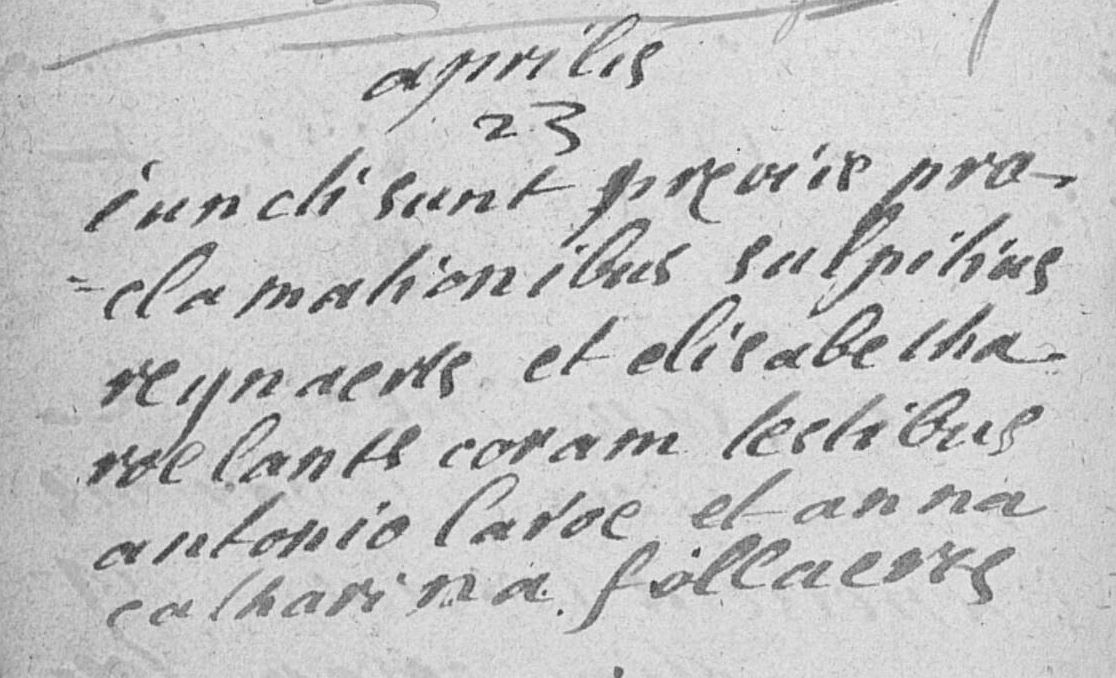 aprilis
23
iuncti sunt pręviis pro-
=clamationibus sulpitius
reynaerts et elisabetha
roelants coram testibus
antonio laroe et anna
catharina follaerts